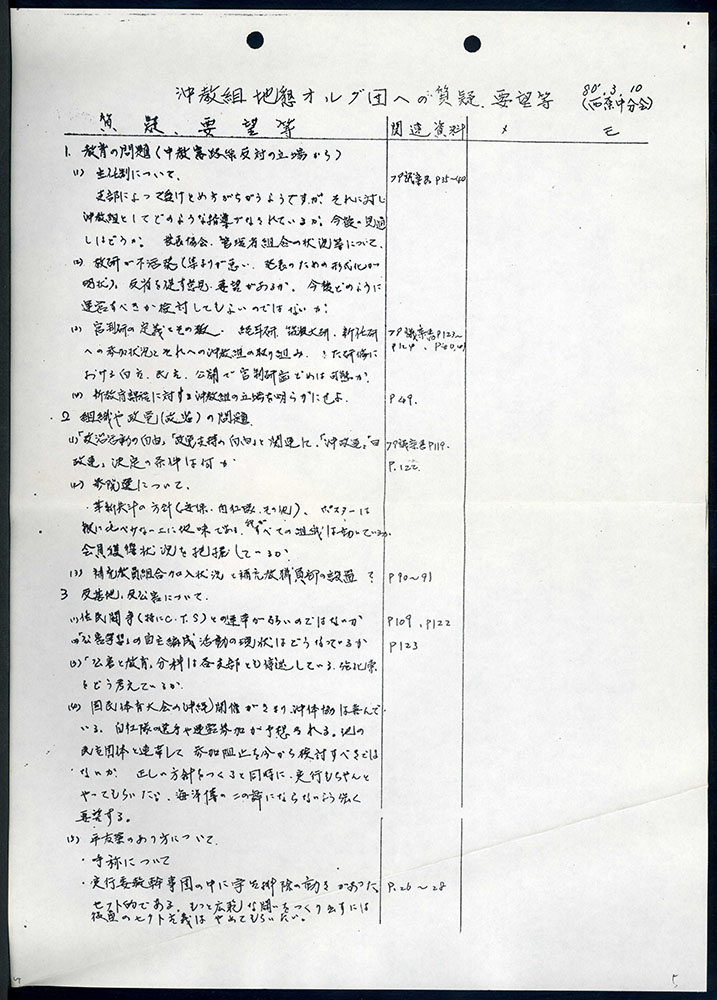 沖教組地懇オルグ団への質疑、要望等
80'.3.10
(西原中分会)
質疑、要望等 関連資料 メモ
1. 教育の問題(中教審路線反対の立場から)
(1) 主任制について、
支部によって受けとめ方がちがうようですが それに対し
P35~40
沖教組としてどのような指導がなされているか。今後の見通
しはどうか。 校長協会、管理者組合の状況等について、
(2) 教研が不活発(集まりが悪い、発表のための形式化が
、反省を促す意見・要望があるか。今後どのように
運営すべきか検討してもよいのではないか。
(3) 官制研の定義とその数、
P123~
への参加状況とそれへの沖教組の取り組み、また研修に
P124
おける自主、民主、公開で官制研 は可能か。
(4) 新教育課程に対する沖教組の立場を明らかにせよ。 P49.
2 組織や政党(政治)の問題
(1)「政治活動の自由」「政党支持の自由」と関連して、
P119.
決定の条件は何か
P.122
(2) 参院選について、
・革新共斗の方針(安保・自衛隊、その他)、ポスターは
に比べ 地味である すべての組織は動いているか、
会員獲得状況を把握しているか
(3) 補充教員組合加入状況と補充教職員部の設置? P90~91
3 反基地、反公害について、
(1)住民闘争(特にC.T.S)との連帯が弱いのではないか P109、P122
(2)「公害学習」の自主編成活動の現状はどうなっているか P123
(3)「公害と教育」分科は各支部とも停迷している、強化策
をどう考えているか、
(4) 国民体育大会の(沖縄)開催がきまり、沖体協は喜んで
いる、自衛隊の選手や運営参加が予想される。他の
民主団体と連帯して 参加阻止を今から検討すべきでは
ないか 正しい方針をつくると同時に、実行もちゃんと
やってもらいたい、海洋博の二の舞にならないよう強く
要望する。
(5) 平友祭のあり方について、
・呼称について
・実行委教幹事団の中に学生排除の動きがあった P.26~28
セクト的である。もっと広範な闘いをつくり出すには
のセクト主義はやめてもらいたい。